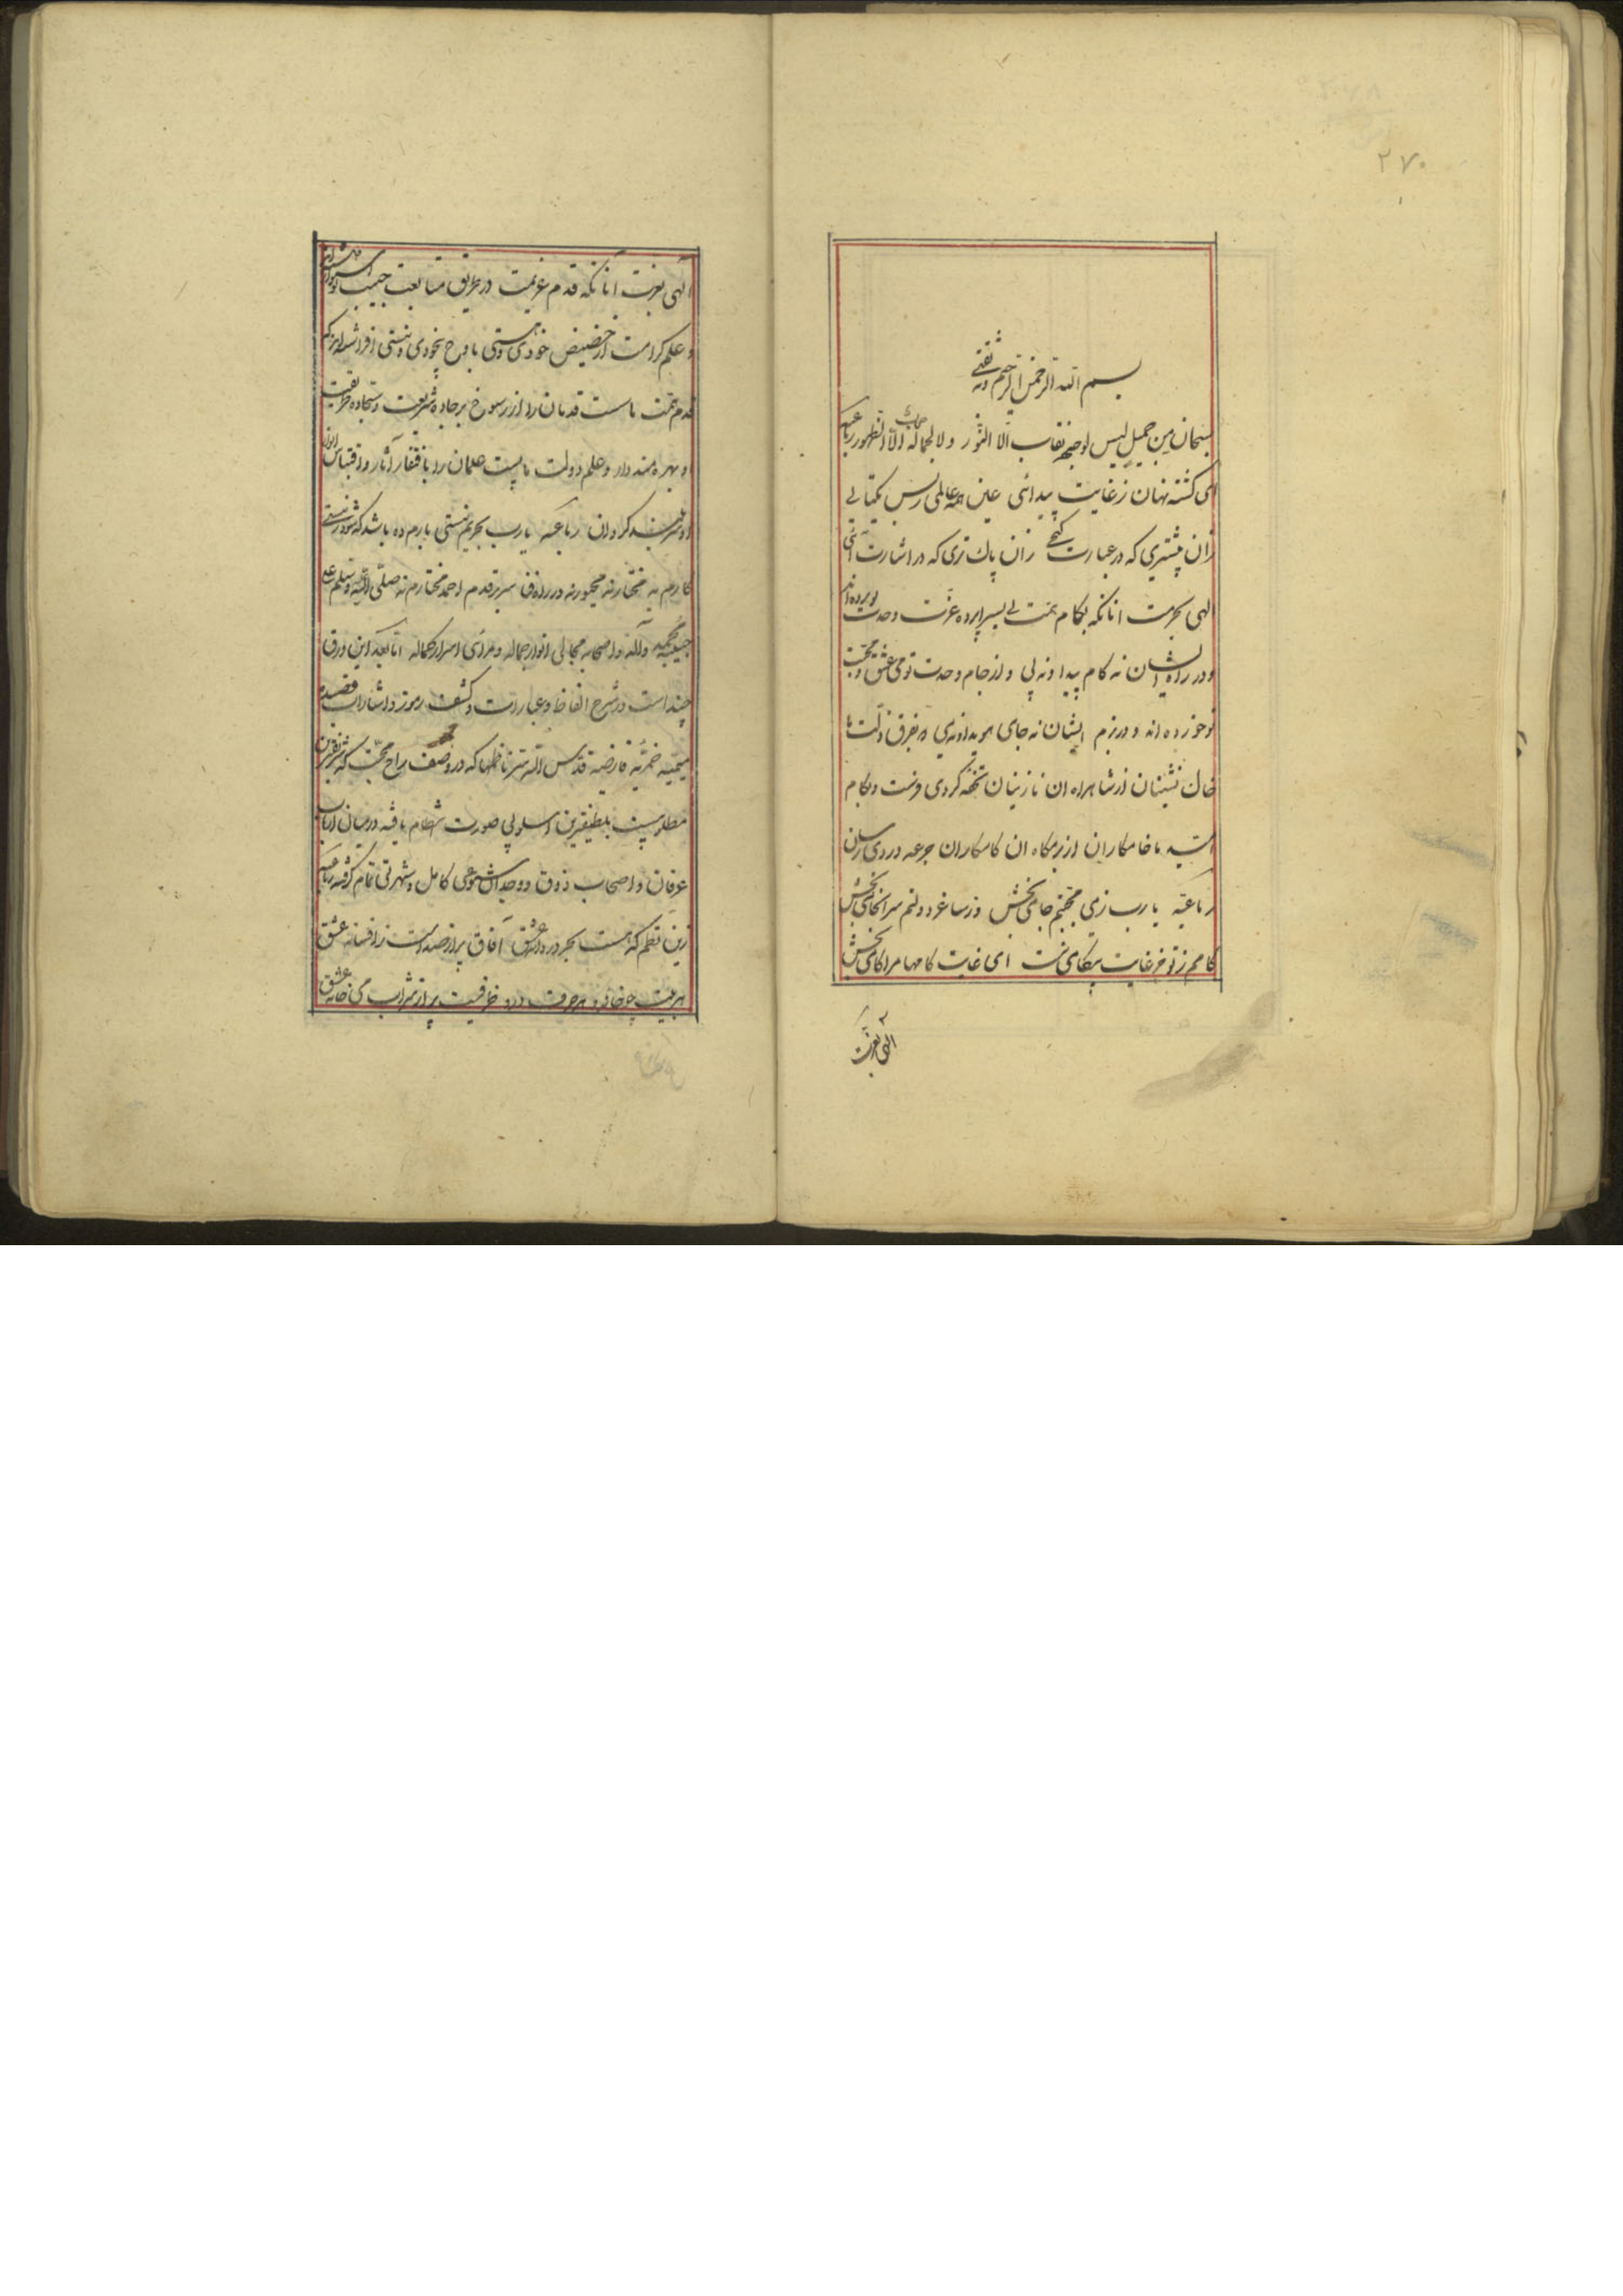 ۲۷۰
بسم الله الرحمن الرحیم وبه ثقتی
سبحان من جمیل لیس لوجهه نقاب الا النور ولا لجماله حجاب الا الظهور رباعیه
ای کشته نهان زغایت پیدائی عین همه عالمی زبس یکتایی
زان پیشتری که در عبارت کنجی زان پاک تری که در اشارت آئی
الهی بحرمت انانکه بکام همت پی بسراپرده عزت وحدت تو برده اند
ودر راه ایشان نه کام پیدا ونه پی واز جام وحدت تو می عشق ومحبت
تو خورده اند ودر بزم ایشان نه جام هویدا ونه می که بفرق ذلت ما
خاک نشینان از شاهراه ان نازنینان تحفه کردی فرست وبکام
امید ما خامکاران از بزمکاه ان کامکاران جرعه دردی رسان
رباعیه یا رب زمی محبتم جامی بخش وز ساغر دولتم سرانجامی بخش
کامم زتو جز غایت ناکامی نیست ای غایت کامها مرا کامی بخش
الهی بعزت
الهی بعزت آنانکه قدم عزیمت در طریق متابعت حبیب تو استوار داشته اند
وعلم کرامت از حضیض خودی وهستی باوج بیخودی ونیستی افراشته اند که
قدم همت ما سست قدمان را از رسوخ بر جاده شریعت وسجاده طریقت
بهره مند دار وعلم دولت ما پست علمان را باقتفار آثار واقتباس انوار
او سربلند کردان رباعیه یا رب بحریم نیستی بارم ده باشد که شود ز نیستی
کارم به مختار نه مجبور نه در راه فنا سر بر قدم احمد مختارم نه صلی الله علیه وسلم علی
حبیبه محمد وآله واصحابه مجالی انوار جماله ومرائی اسرار کماله اما بعد این ورقی
چند است در شرح الفاظ وعبارات وکشف رموز واشارات قصیده
میمیه خمریه فارضیه قدس الله سر ناظمها که در وصف راح محبت که شریفترین
مطلوبیست بلطیفترین اسلوبی صورت انتظام یافته ودر میان ارباب
عرفان واصحاب ذوق ووجدان شیوعی کامل وشهرتی تمام گرفته رباعیه
زین نظم که هست بحر دردانه عشق آفاق پر از صداست ز افسانه عشق
هر بیت چو خانه وهر حرف درو ظرفیست پر از شراب میخانه عشق